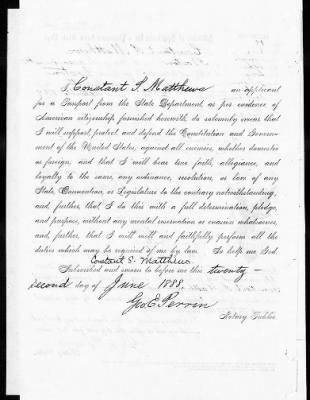 I, Constant S. Matthews an applicant
for a Passport from the State Department, as per evidence of
American citizenship furnished herewith, do solemnly swear that
I will support, protect, and defend the Constitution and Govern-
ment of the United States, against all enemies, whether domestic
or foreign, and that I will bear true faith, allegiance, and
loyalty to the same, any ordinance, resolution, or law of any
State, Convention, or Legislature to the contrary notwithstanding,
and, further, that I do this with a full determination, pledge,
and purpose, without any mental reservation or evasion whatsoever,
and, further, that I will well and faithfully perform all the
duties which may be required of me by law. So help me God.
Constant S. Matthews
Subscribed and sworn to before me this twenty-
second day of June 1888.
Geo. E. Perrin
Notary Public